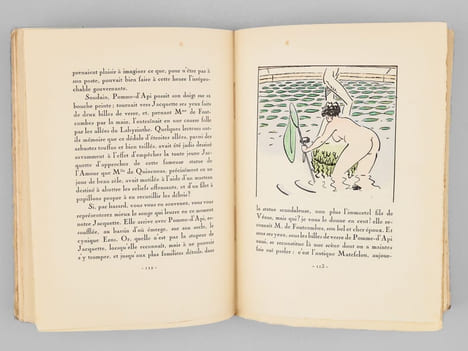 prenaient plaisir à imaginer ce que, pour n'être pas à
son poste, pouvait bien faire à cette heure l'irrépro-
chable gouvernante.
Soudain, Pomme-d'Api possait son doigt sur sa
bouche peinte; tournait vers Jacquette ses yeux faits
de deux billes de verre, et, prenant Mme de Font-
combes par la main, l'entraînait en une course folle
par les allées du Labyrinthe. Quelques lecteurs ont-
ils mémoire que ce dédale d'étroites allées, parmi des
arbustes touffus et bien taillés, avait été jadis dessiné
savamment à l'effet d'empêcher la toute jeune Jac-
quette d'approcher de cette fameuse statue de
l'Amour que Mme de Quinconas, précisément en ces
jours de beau zèle, avait mutilée à l'aide d'un marteau
destiné à abattre les reliefs offensants, et d'un filet à
papillons propre à en recueillir les débris?
Si, par hasard, vous vous en souvenez, vous vous
représenterez mieux le songe qui leurre en ce moment
notre Jacquette. Elle arrive avec Pomme-d'Api, es-
soufflée, au bassin d'où émerge, sur son socle, le
cynique Eros. Or, quelle n'est pas la stupeur de
Jacquette, lorsqu'elle reconnaît, mais à ne pouvoir
s'y tromper, et jusqu'aux plus familiers détails, dans
- 112 -
la statue scandaleuse, non plus l'immortel fils de
Vénus, mais qui? je vous le donne en cent! elle re-
connaît M. de Fontcombes, son bel et cher époux. Et
sous ses yeux, sous les billes de verre de Pomme-d'Api
aussi, se reconstitue là une scène dont on a mainte-
nant osé parler : c'est l'antique Matefelon, aujour-
- 113 -